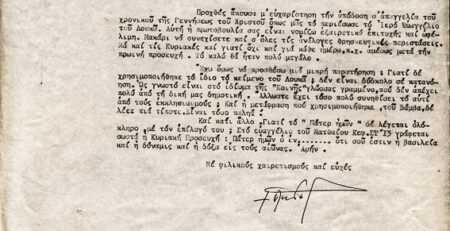 Προχθές άκουσα μ' εὐχαρίστηση τήν ἀπόδοση σ' ἀπαγγελία τοῦ
χρονικοῦ τῆς Γεννήσεως τοῦ Χριστοῦ ὅπως μᾶς τό περιέσωσε τό Ἱερό Εὐαγγέλιο
τοῦ Λουκᾶ. Αὐτή ἡ πρωτοβουλία σας εἶναι νομίζω ἐξαιρετικά ἐπιτυχής καί ὠφέ-
λιμη. Μακάρι νά συνεχίσετε καί σ' ὅλες τίς ἀνάλογες θρησκευτικές περιστάσεις.
Μά καί τίς Κυριακές καί γιατί ὄχι καί γιά κάθε ἡμέρα, π.χ. ἀμέσως μετά τήν
πρωινή προσευχή. Τό καλό θά ἦταν πολύ μεγάλο.
Ἔχω ὅμως νά προσθέσω μιά μικρή παρατήρηση : Γιατί δέ
χρησιμοποιήθηκε τό ἴδιο τό κείμενο τοῦ Λουκᾶ; Δέν εἶναι δύσκολο σέ κατανόη-
ση. Ὡς γνωστό εἶναι στό ἰδίωμα τῆς "Κοινῆς" γλώσσας γραμμένο, πού δέν ἀπέχει
πολύ ἀπό τή δική μας δημοτική. Ἄλλωστε ἔχει τόσο πολύ συνηθίσει τό αὐτί
ἀπό τούς ἐκκλησιασμούς; Καί ἡ μετάφραση πού χρησιμοποιήθηκε, τοῦ Βάμβα, δέ
λέει πιά τίποτε. Εἶναι τόσο παληά!
Καί κάτι ἄλλο. Γιατί τό " Πάτερ ἡμῶν " δέ λέγεται ὁλό-
κληρο, μέ τόν ἐπίλογό του ; Στό εὐαγγέλιο τοῦ Ματθαίου Κεφ. ΣΤ' 13 γράφεται
σωστά ἡ Κυριακή Προσευχή : Πάτερ ἡμῶν ὁ ἐν........ ὅτι σοῦ ἐστίν ἡ βασιλεία
καί ἡ δύναμις καί ἡ δόξα εἰς τούς αἰῶνας. Ἀμήν.
Μέ φιλικούς χαιρετισμούς καί εὐχές